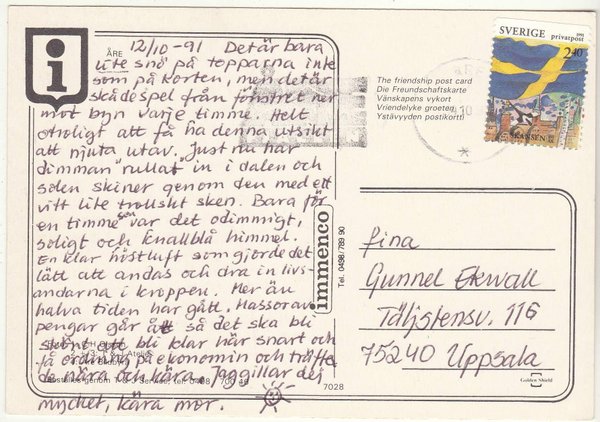 i
ÅRE
12/10-91 Det är bara
lite snö på topparna inte
som på korten, men det är
skådespel från fönstret ner
mot byn varje timme. Helt
otroligt att få ha denna utsikt
att njuta utav. Just nu har
dimman "rullat" in i dalen och
solen skiner genom den med ett
vitt lite trollskt sken. Bara för
en timme sen var det odimmigt,
soligt och knallblå himmel.
En klar höstluft som gjorde det
lätt att andas och dra in livs-
andarna i kroppen. Mer än
halva tiden har gått. Massor av
pengar går åt så det ska bli
skönt att bli klar här snart och
få ordning på ekonomin och träffa
de nära och kära. Jag gillar dej
mycket, kära mor.
7028
immenco
Tel. 0498/789 90
The friendship post card
Die Freundschaftskarte
Vänskapens vykort
Vriendelyke groeten
Ystävyyden postikortti
SVERIGE
1991
privatpost
2,40
SKANSEN
fina
Gunnel Ekwall
Täljstensv. 116
75240 Uppsala
Golden Shield